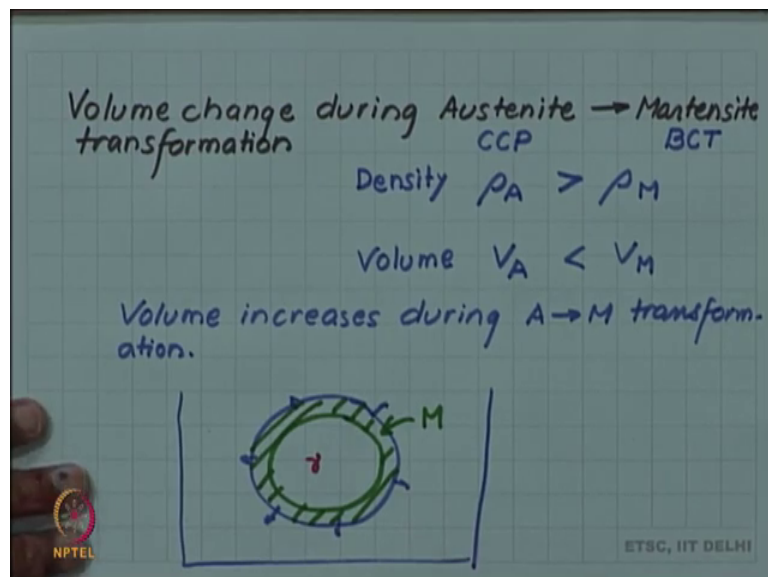 Volume change during Austenite → Martensite
transformation
CCP BCT
Density ρA > ρM
Volume VA < VM
Volume increases during A→M transform-
ation.
M
γ
NPTEL
ETSC, IIT DELHI